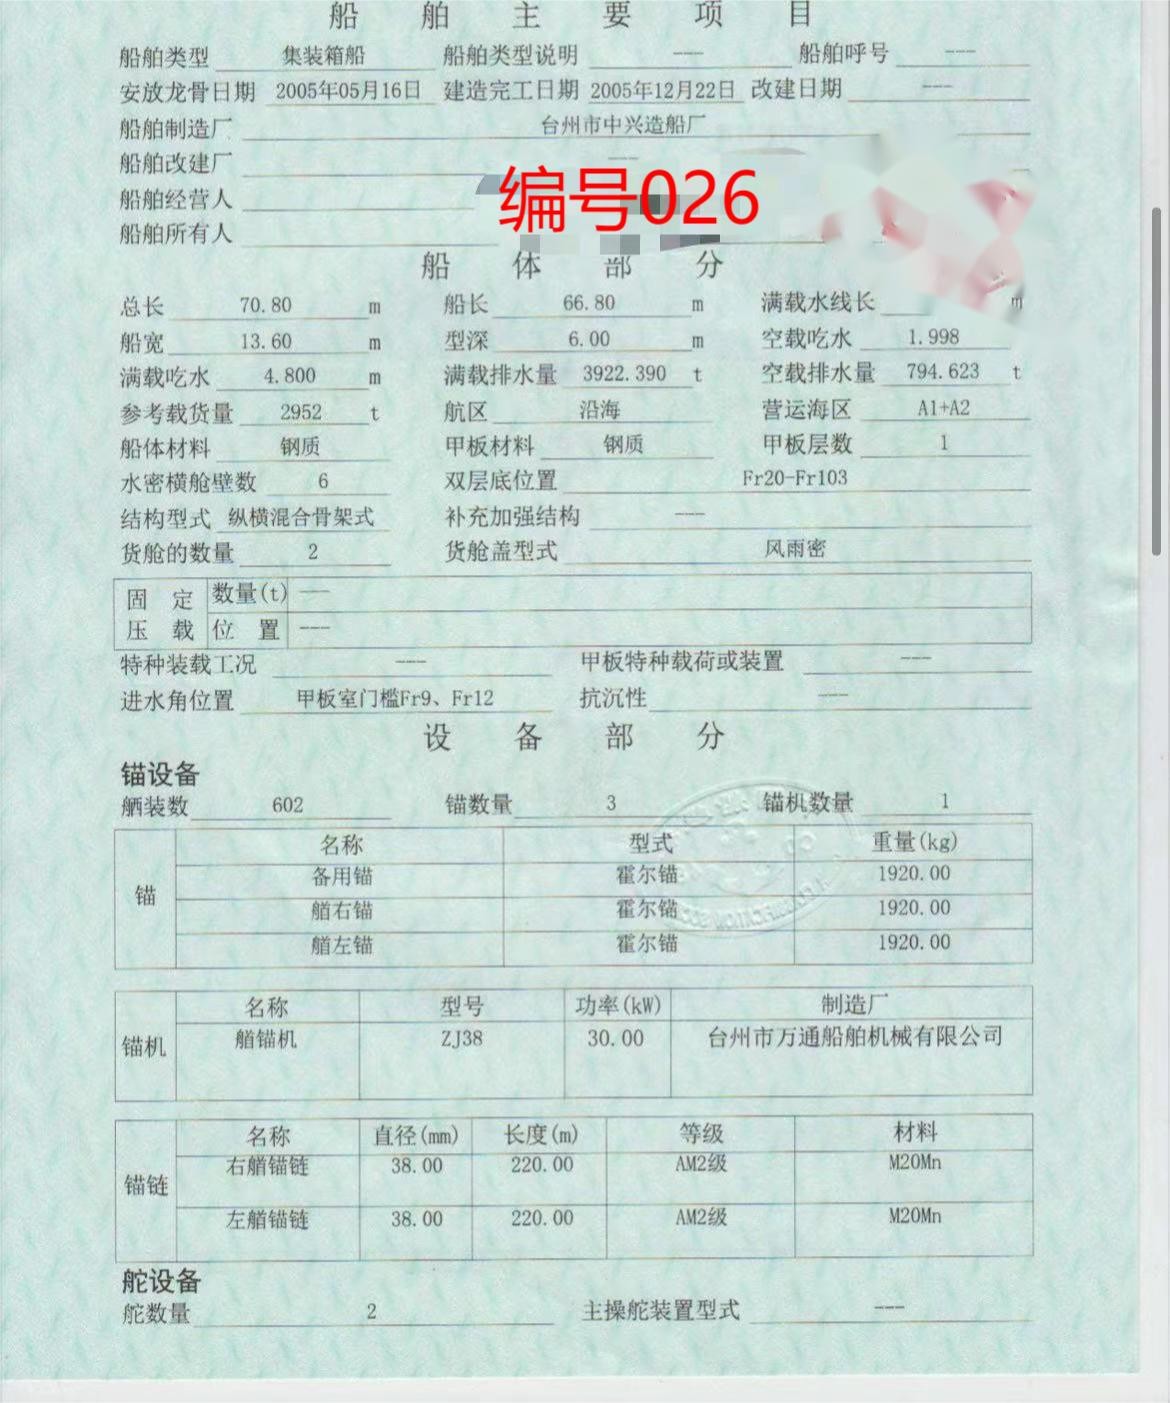 船 舶 主 要 项 目
船舶类型 集装箱船 船舶类型说明 --- 船舶呼号 ---
安放龙骨日期 2005年05月16日 建造完工日期 2005年12月22日 改建日期 ---
船舶制造厂 台州市中兴造船厂
船舶改建厂 ---
船舶经营人
编号026
船舶所有人
船 体 部 分
总长 70.80 m 船长 66.80 m 满载水线长 m
船宽 13.60 m 型深 6.00 m 空载吃水 1.998
满载吃水 4.800 m 满载排水量 3922.390 t 空载排水量 794.623 t
参考载货量 2952 t 航区 沿海 营运海区 A1+A2
船体材料 钢质 甲板材料 钢质 甲板层数 1
水密横舱壁数 6 双层底位置 Fr20-Fr103
结构型式 纵横混合骨架式 补充加强结构 ---
货舱的数量 2 货舱盖型式 风雨密
固 定 数量(t) ---
压 载 位 置 ---
特种装载工况 --- 甲板特种载荷或装置 ---
进水角位置 甲板室门槛Fr9、Fr12 抗沉性 ---
设 备 部 分
锚设备
舾装数 602 锚数量 3 锚机数量 1
锚
名称 型式 重量(kg)
备用锚 霍尔锚 1920.00
艏右锚 霍尔锚 1920.00
艏左锚 霍尔锚 1920.00
锚机
名称 型号 功率(kW) 制造厂
艏锚机 ZJ38 30.00 台州市万通船舶机械有限公司
锚链
名称 直径(mm) 长度(m) 等级 材料
右艏锚链 38.00 220.00 AM2级 M20Mn
左艏锚链 38.00 220.00 AM2级 M20Mn
舵设备
舵数量 2 主操舵装置型式 ---